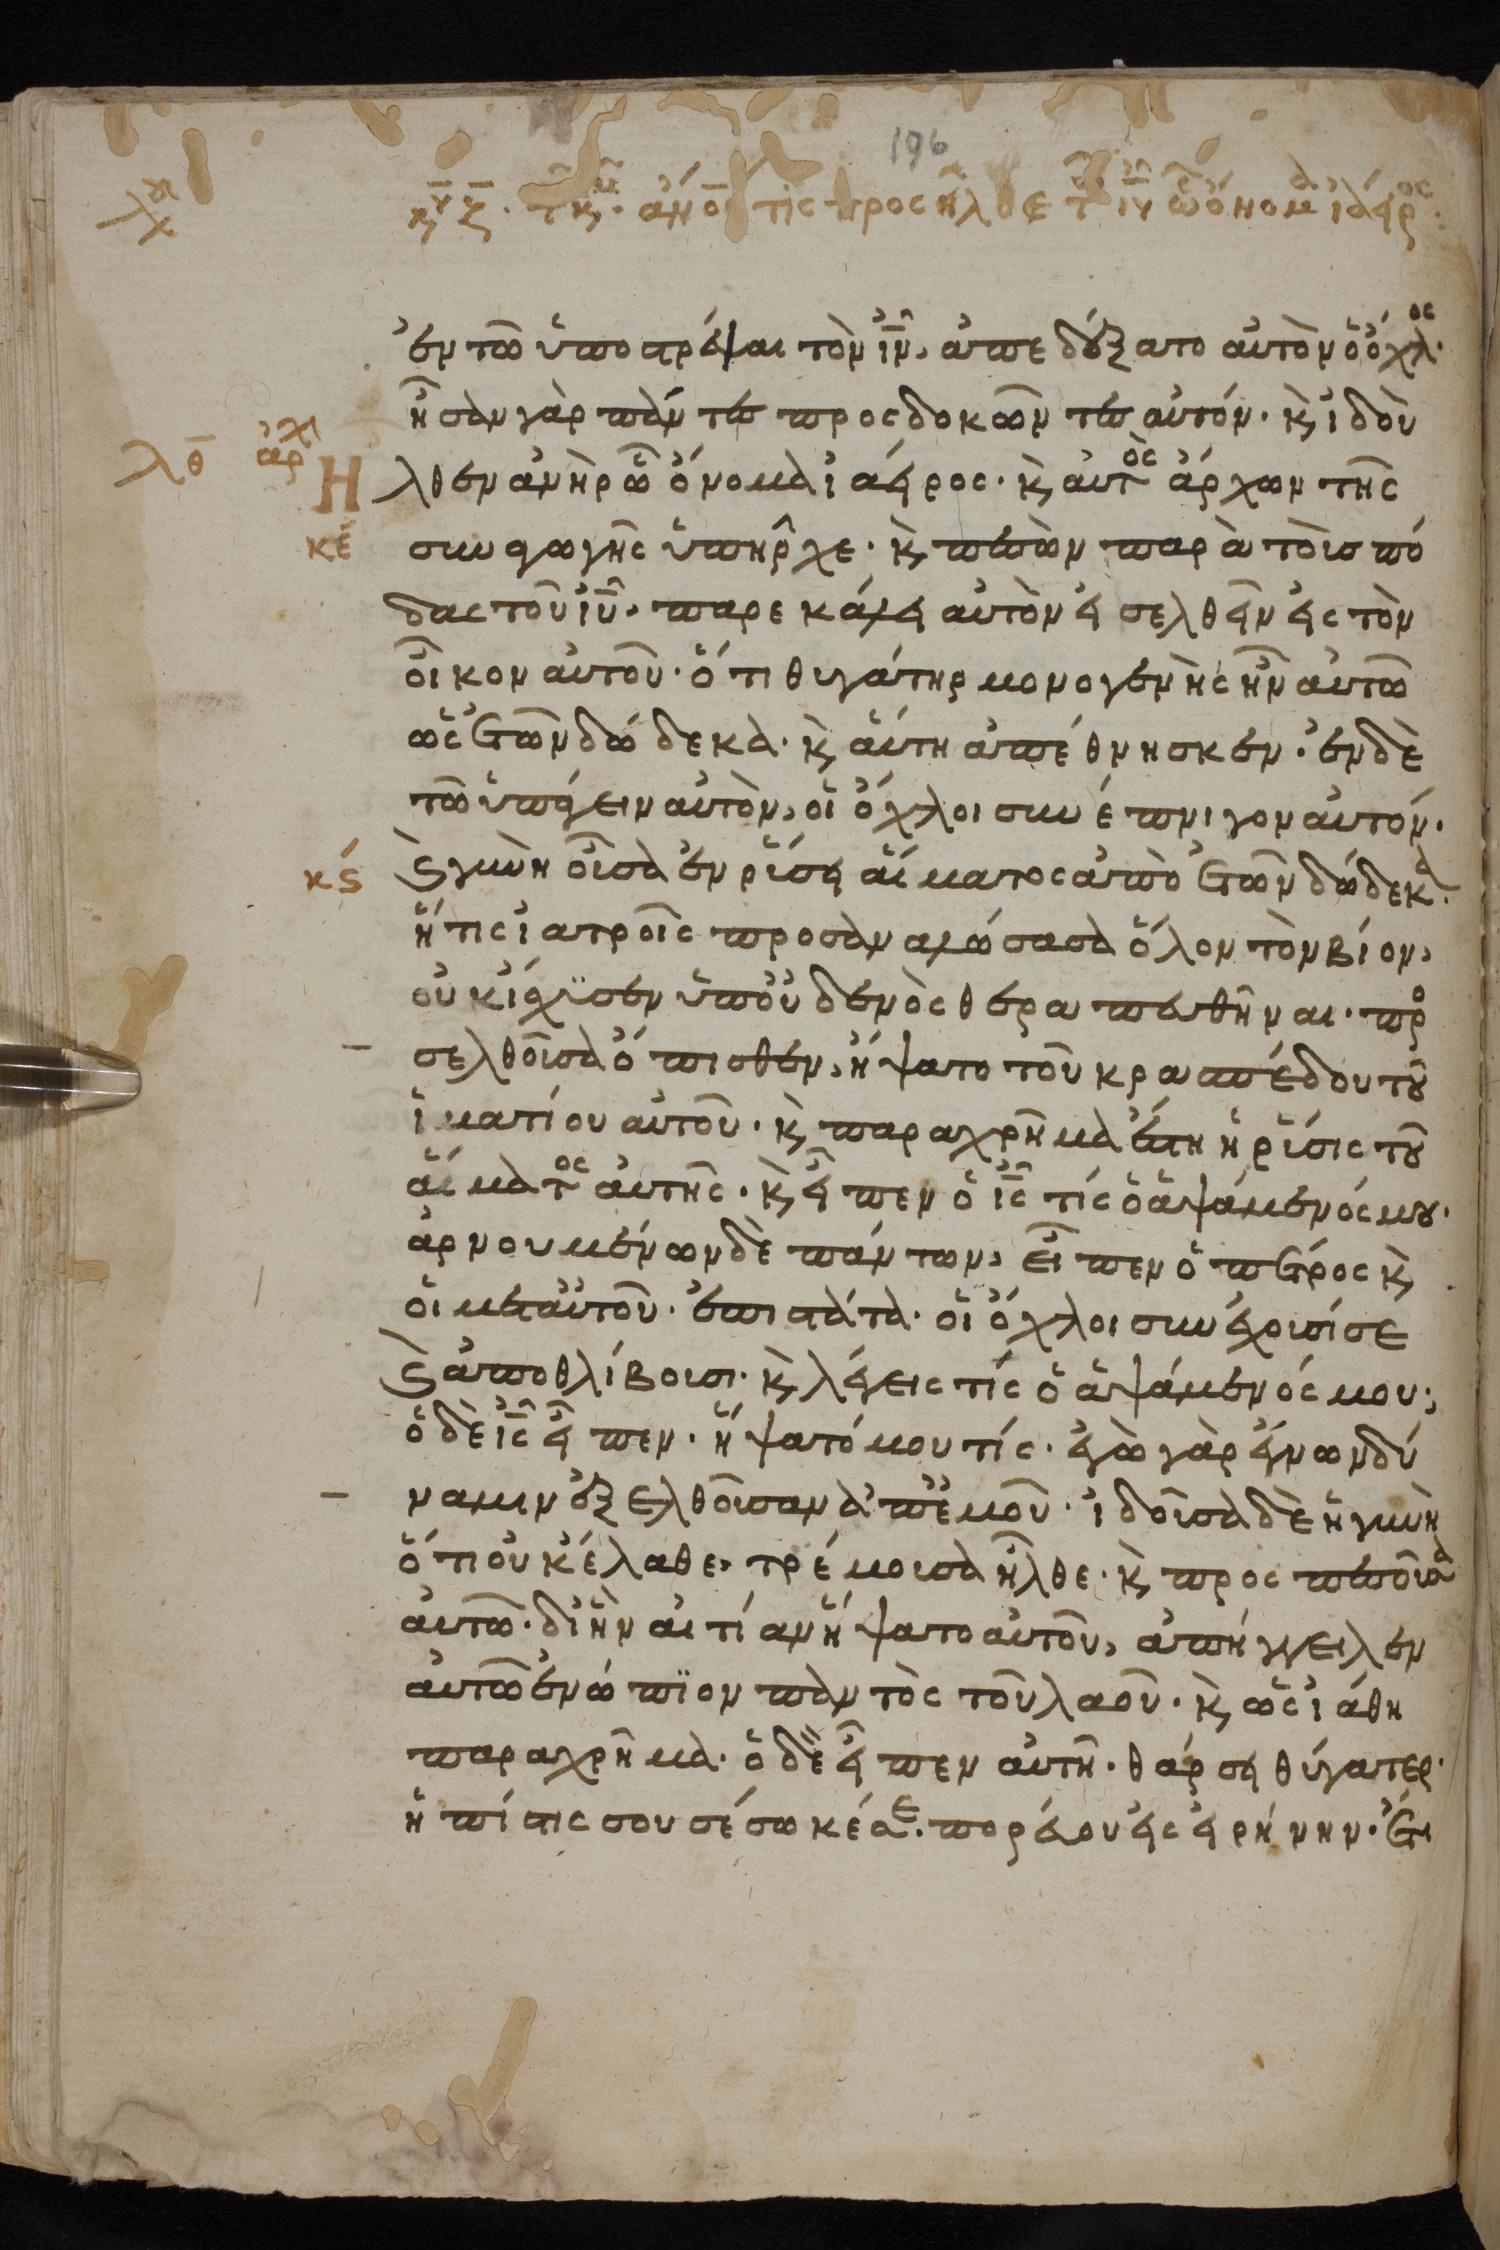 196
κυ ζ. τῶ κ. ἀνος τὶς προσῆλθε τ ιν ὧ ὄνομα ἰάειρος.
ἐν τῶ ὑποστρέψαι τὸν ἰν, ἀπεδέξατο αὐτὸν ὁ ὄχλος.
ἦσαν γὰρ πάντες προσδοκῶντες αὐτόν. κ ἰδοὺ
λθ ἀρχ Ηλθεν ἀνὴρ ὧ ὄνομα ἰάειρος. κ αὐτὸς ἄρχων τῆς
κε συναγωγῆς ὑπῆρχε. κ πεσὼν παρὰ τοὺς πό
δας τοῦ ἰυ. παρεκάλει αὐτὸν εἰσελθεῖν εἰς τὸν
οἶκον αὐτοῦ. ὅτι θυγάτηρ μονογενὴς ἦν αὐτῶ
ὡς ἐτῶν δώδεκα. κ αὕτη ἀπέθνησκεν. ἐν δὲ
τῶ ὑπάγειν αὐτὸν, οἱ ὄχλοι συνέπνιγον αὐτόν.
κς κ γυνὴ οὖσα ἐν ῥύσει αἵματος ἀπὸ ἐτῶν δώδεκα.
ἥτις ἰατροῖς προσαναλώσασα ὅλον τὸν βίον,
οὐκ ἴσχυσεν ὑπ' οὐδενὸς θεραπευθῆναι. προ
σελθοῦσα ὄπισθεν, ἥψατο τοῦ κρασπέδου τοῦ
ἱματίου αὐτοῦ. κ παραχρῆμα ἔστη ἡ ῥύσις τοῦ
αἵματος αὐτῆς. κ εἶπεν ὁ ἰς τίς ὁ ἁψάμενός μου.
ἀρνουμένων δὲ πάντων, εἶπεν ὁ πέτρος κ
οἱ μετ' αὐτοῦ. ἐπιστάτα. οἱ ὄχλοι συνέχουσί σε
κ ἀποθλίβουσι. κ λέγεις τίς ὁ ἁψάμενός μου;
ὁ δὲ ἰς εἶπεν. ἥψατό μου τίς. ἐγὼ γὰρ ἔγνων δύ
ναμιν ἐξελθοῦσαν ἀπ' ἐμοῦ. ἰδοῦσα δὲ ἡ γυνὴ
ὅτι οὐκ ἔλαθε, τρέμουσα ἦλθε. κ προσπεσοῦσα
αὐτῶ. δι' ἣν αἰτίαν ἥψατο αὐτοῦ, ἀπήγγειλεν
αὐτῶ ἐνώπϊον παντὸς τοῦ λαοῦ. κ ὡς ἰάθη
παραχρῆμα. ὁ δὲ εἶπεν αὐτῆ. θάρσει θύγατερ.
ἡ πίστις σου σέσωκέ σε. πορεύου εἰς εἰρήνην. ἔτι